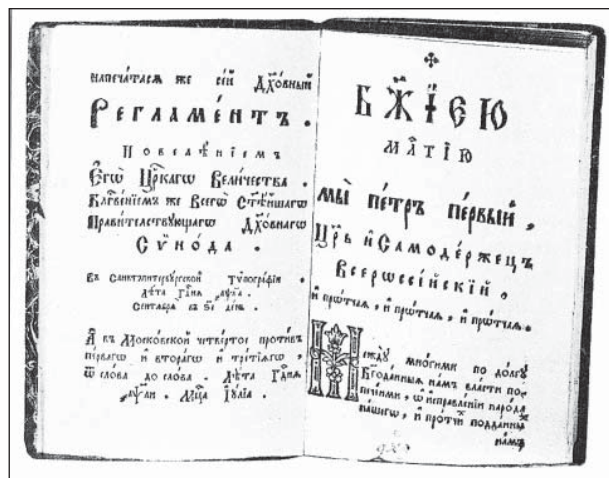 напеча́тася же се́й Дх҃о́вный
Регламе́нтъ .
Повелѣ́нїемъ
Егѡ̀ Цр҃каго Вели́чества .
Бл҃гве́нїемъ же Всегѡ̀ Ст҃ѣ́йшагѡ
Прави́телствующагѡ Дх҃о́внагѡ
Сѷно́да .
Въ Санктъпитербу́ргской Тѷпогра́фїи .
лѣ́та гдⷭ҇нѧ
Септа́врїа въ день .
А҆ въ Моско́вской четве́ртое проти́въ
пе́рвагѡ и҆ втора́гѡ и҆ тре́тїагѡ ,
ѿ сло́ва до сло́ва . лѣ́та гдⷭ҇нѧ
мцⷭ҇а І҆у́лїа .
БЖ҃ІЕЮ
МЛⷭ҇ТІЮ
мы̀ пе́тръ пе́рвый ,
Цр҃ь и҆ Самоде́ржецъ
Всерѡссі́йскїй ,
и҆ прѡ́тчаѧ , и҆ прѡ́тчаѧ , и҆ прѡ́тчаѧ .
Между̀ мно́гими по до́лгу
бг҃ода́нныѧ на́мъ вла́сти по-
пече́ньми , ѡ҆ и҆справле́нїи наро́да
на́шегѡ , и҆ про́тчих по́дданных
на́мъ